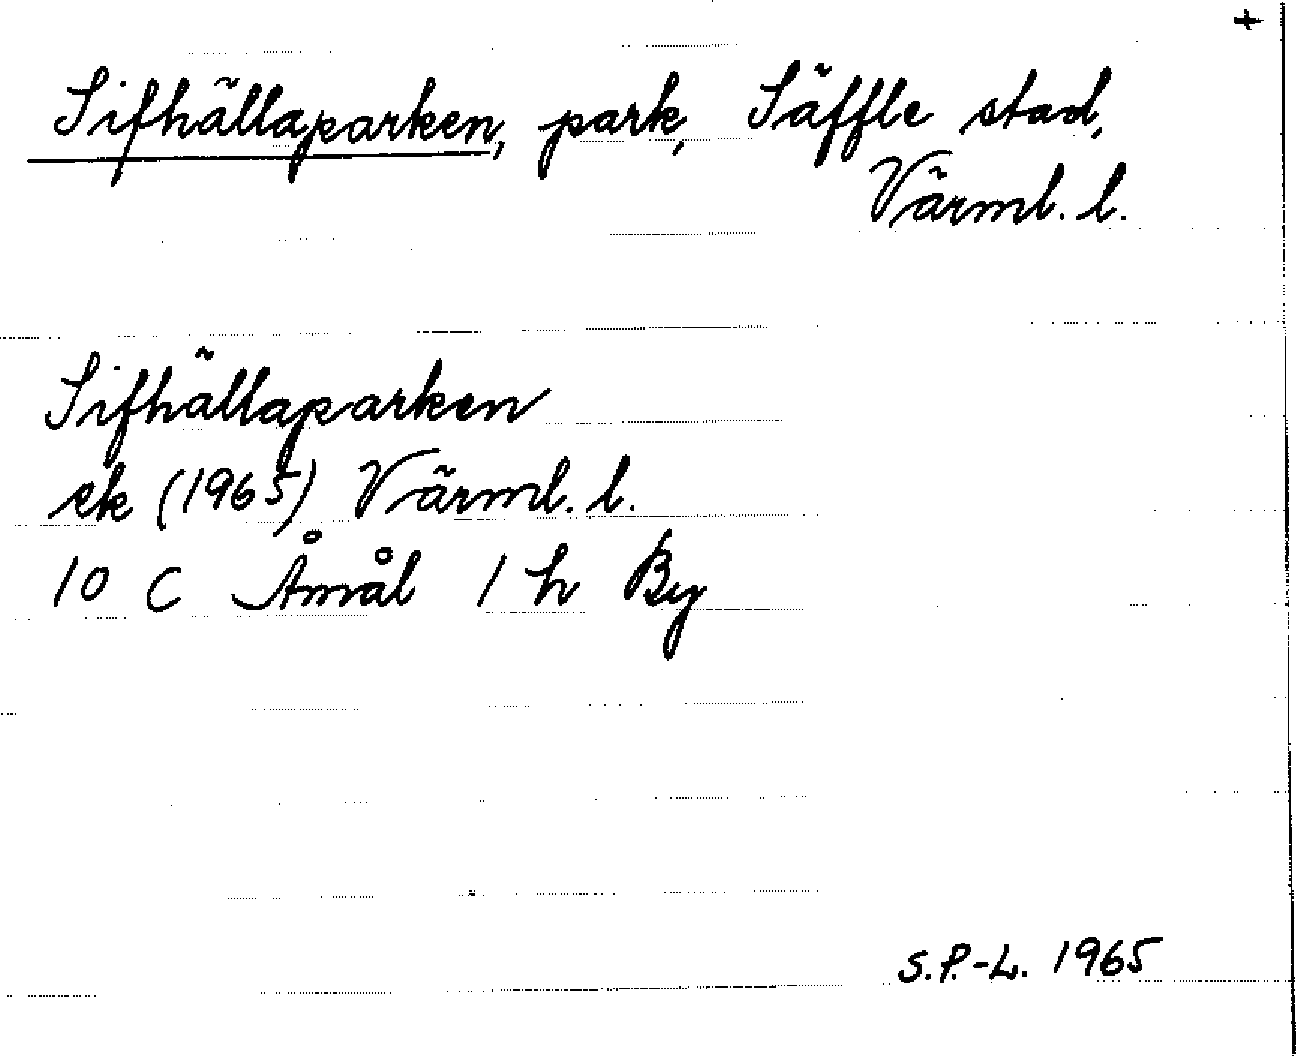 +
Sifhällaparken, park, Säffle stad,
Värml. l.
Sifhällaparken
ek (1965) Värml. l.
10 C Åmål 1 h By
S.P.-L. 1965